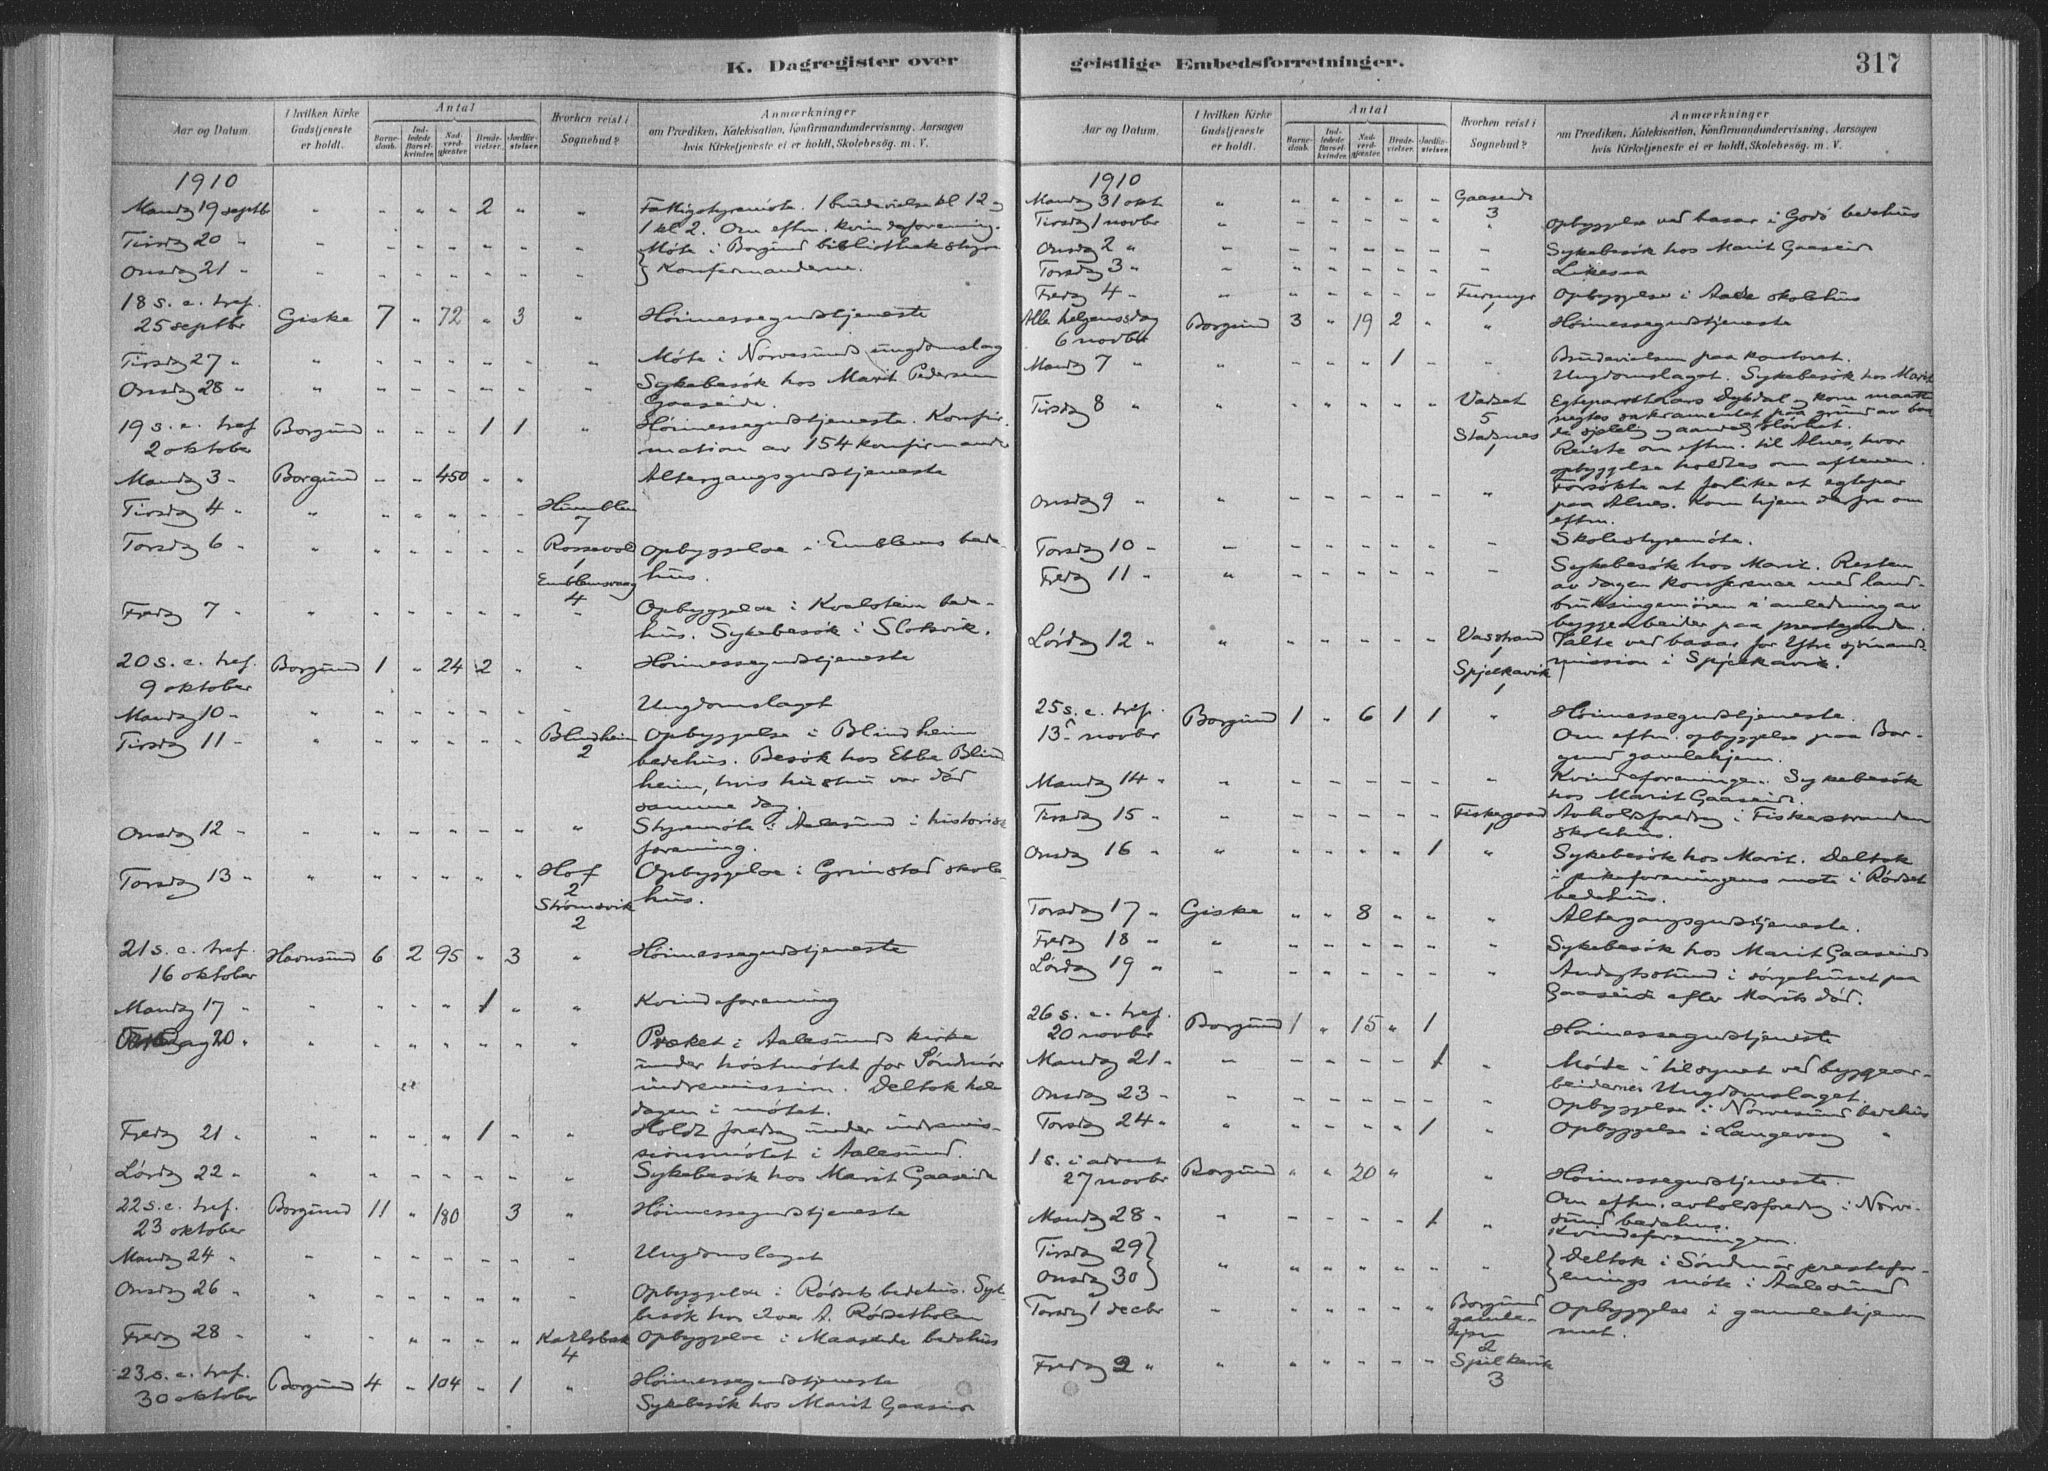 K. Dagregister over
Aar og Datum.
I hvilken Kirke Gudstjeneste er holdt.
Antal
Barnedaab.
Indledede Barselkvinder.
Nadverdgjæster.
Brudevielser.
Jordfæstelser.
Hvorhen reist i Sognebud?
Anmærkninger
om Prædiken, Katekisation, Konfirmandundervisning. Aarsagen
hvis Kirketjeneste ei er holdt, Skolebesøg. m. V.
1910
Mandag 19 septbr " " " " 2 " " Fattigstyremöte. 1 brudevielse kl 12 og
1 kl 2. Om eftm. kvindeforening.
Tirsdag 20 " " " " " " " " Möte i Borgund bibliothekstyre
Onsdag 21 " " " " " " " " } Konfirmanderne.
18 s. e. tref.
25 septbr Giske 7 " 72 " 3 " Höimessegudstjeneste
Tirsdag 27 " " " " " " " " Möte i Nörvesund ungdomslag
Onsdag 28 " " " " " " " " Sykebesök hos Marit Pedersen
Gaaseide.
19 s. e. tref
2 oktober Borgund " " " 1 1 " Höimessegudstjeneste. Konfir-
mation av 154 konfirmander
Mandag 3 " Borgund " " 450 " " Altergangsgudstjeneste
Tirsdag 4 " " " " " " " Humblen
7
Torsdag 6 " " " " " " " Rossevold Opbyggelse i Emblems bede-
1 hus.
Emblemsvaag
4
Fredag 7 " " " " " " " " Opbyggelse i Kvalstein bede-
hus. Sykebesök i Slotsvik.
20 s. e. tref.
9 oktober Borgund 1 " 24 2 " " Höimessegudstjeneste
Mandag 10 " " " " " " " " Ungdomslaget
Tirsdag 11 " " " " " " " Blindheim Opbyggelse i Blindheim
2 bedehus. Besök hos Ebbe Blind
heim, hvis hustru var död
samme dag.
Onsdag 12 " " " " " " " " Styremöte i Aalesund i historisk
forening.
Torsdag 13 " " " " " " " Hof Opbyggelse i Grimstad skole-
2 hus.
Strømsvik
2
21 s. e. tref.
16 oktober Havnsund 6 2 95 " 3 " Höimessegudstjeneste
Mandag 17 " " " " " 1 " " Kvindeforening
Torsdag 20 " " " " " " " " Præket i Aalesunds kirke
under höstmötet for Söndmör
indremission. Deltok hele
dagen i mötet.
Fredag 21 " " " " " 1 " " Holdt foredrag under indremis-
sionsmötet i Aalesund.
Lördag 22 " " " " " " " " Sykebesök hos Marit Gaaseide
22 s. e. tref.
23 oktober Borgund 11 " 180 3 " Höimessegudstjeneste
Mandag 24 " " " " " " " " Ungdomslaget
Onsdag 26 " " " " " " " " Opbyggelse i Rödsets bedehus. Syke-
besök hos Iver A. Rödsetholen
Fredag 28 " " " " " " " Karlsbak Opbyggelse i Maaseide bedehus
4
23 s. e. tref.
30 oktober Borgund 4 " 104 " 1 " Höimessegudstjeneste
Sykebesök hos Marit Gaaseide
geistlige Embedsforretninger.
317
Aar og Datum.
I hvilken Kirke Gudstjeneste er holdt.
Antal
Barnedaab.
Indledede Barselkvinder.
Nadverdgjæster.
Brudevielser.
Jordfæstelser.
Hvorhen reist i Sognebud?
Anmærkninger
om Prædiken, Katekisation, Konfirmandundervisning. Aarsagen
hvis Kirketjeneste ei er holdt, Skolebesøg. m. V.
1910
Mandag 31 okt " " " " " " Gaaseide
3
Tirsdag 1 novbr " " " " " " " Opbyggelse ved basar i Godö bedehus
Onsdag 2 " " " " " " " " Sykebesök hos Marit Gaaseide
Torsdag 3 " " " " " " " " Likesaa
Fredag 4 " " " " " " " Furmyr Opbyggelse i Aade skolehus
1
Alle helgensdag
6 novbr Borgund 3 " 19 2 " " Höimessegudstjeneste
Mandag 7 " " " " " 1 " " Brudevielsen paa kontoret.
Ungdomslaget. Sykebesök hos Marit
Tirsdag 8 " " " " " " " Vadset Egteparet Lars Dybdal og kone maatte
5 negtes sakramentet paa grund av baa
Stadsnes de sjelelig og aandelig slövhet.
1 Reiste om eftm. til Alnes, hvor
opbyggelse holdtes om aftenen.
Onsdag 9 " " " " " " " " Forsökte at forlike et egtepar
paa Alnes. Kom hjem derfra om
eftm.
Torsdag 10 " " " " " " " " Skolestyremöte.
Fredag 11 " " " " " " " " Sykebesök hos Marit. Resten
av dagen konferense med land-
bruksingeniören i anledning av
byggearbeider paa prestegaarden.
Lördag 12 " " " " " " " Vasstrand Talte ved basar for Ytre sjömands
1 mission i Spjelkavik.
Spjelkavik
1
25 s. e. tref.
13 novbr Borgund 1 " 6 1 1 " Höimessegudstjeneste.
Om eftm. opbyggelse paa Bor-
gund gamlehjem.
Mandag 14 " " " " " " " " Kvindeforeningen. Sykebesök
hos Marit Gaaseide.
Tirsdag 15 " " " " " " Fiskergaard Avholdsforedrag i Fiskerstranden
1 skolehus.
Onsdag 16 " " " " " " 1 " Sykebesök hos Marit. Deltok
i pikeforeningens möte i Rödset
bedehus.
Torsdag 17 " Giske " " 8 " " " Altergangsgudstjeneste.
Fredag 18 " " " " " " " " Sykebesök hos Marit Gaaseide
Lördag 19 " " " " " " " " Andagtsstund i sörgehuset paa
Gaaseide efter Marits död.
26 s. e. tref.
20 novbr Borgund 1 " 15 " 1 Höimessegudstjeneste
Mandag 21 " " " " " " 1 " Möde i tilsynet ved byggear-
beiderne. Ungdomslaget.
Onsdag 23 " " " " " " " " Opbyggelse i Nörvesund bedehus
Torsdag 24 " " " " " " 1 " Opbyggelse i Langevaag "
1 s. i advent
27 novbr Borgund " " 20 " " Höimessegudstjeneste.
Om eftm. avholdsforedrag i Nörve-
sund bedehus.
Mandag 28 " " " " " " 1 " Kvindeforeningen.
Tirsdag 29 }
Onsdag 30 } " " " " " " " } Deltok i Söndmör prestefor-
enings möte i Aalesund
Torsdag 1 decbr " " " " " " Borgund Opbyggelse i gamlehjem
gamle- met.
hjem
2
Fredag 2 " " " " " " " Spjelkavik
3